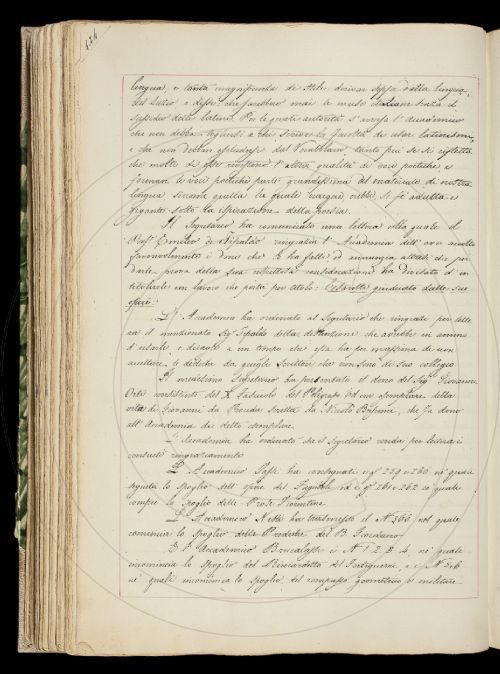 434
lingua, e tanta magnificenza di stile deriva essa dalla lingua
del Lazio e disse: che farebbero mai le muse italiane senza il
sussidio della latina. Per le quali autorità l'Accademico
che non debba togliersi a chi scrive la facoltà di usar latinismi,
e che non debban escludersi dal Vocabolario tanto più se si rifletta
che molte di esse rivestono l'altra qualità di voci poetiche e
formare le voci poetiche parte grandissima del materiale di nostra
lingua siccome quella la quale nacque, crebbe, si fe adulta e
gigante sotto la ispirazione della poesia.
Il Segretario ha comunicato una lettera colla quale il
Prof. Emilio de Tipaldo ringrazia l'Accademia dell'aver accolto
favorevolmente i doni che le ha fatti ed annunzia altresì che
darle prova della sua rispettosa considerazione ha divisato d'in
titolarle un lavoro che porta per titolo: Cesarotti giudicato dalle sue
opere.
L'Accademia ha ordinato al Segretario che ringrazi per lette
ra il mentovato Sig. Tipaldo della distinzione che avrebbe in animo
d'usarle e dicasi a un tempo che essa ha per massima di non
accettare le dediche da quegli scrittori che non sono di suo collegio.
Il medesimo Segretario ha presentato il dono del Sig. Giovanni
Orti consistente del X. Fascicolo del Poligrafo ed un esemplare della
vita di Giovanni da Procida scritta da Niccolò Buscemi, che fa dono
all'Accademia di detto esemplare.
L'Accademia ha ordinato che il Segretario renda per lettera i
consueti ringraziamenti.
L'Accademico Papi ha consegnati i q. 259 e 260 ne' quali
seguita lo spoglio dell'opere del Fagiuoli ed i q. 261 e 262 co' quali
compie lo spoglio delle Prose Fiorentine.
L'Accademico Nesti ha trasmesso il N. 366 nel quale
continua lo spoglio delle Prediche del B. Giordano.
E l'Accademico Brucalassi i N. 1. 2. 3. 4, ne' quali
incomincia lo spoglio del Ricciardetto del Forteguerri, e i N. 5 e 6
ne' quali incomincia lo spoglio del compasso geometrico e militare